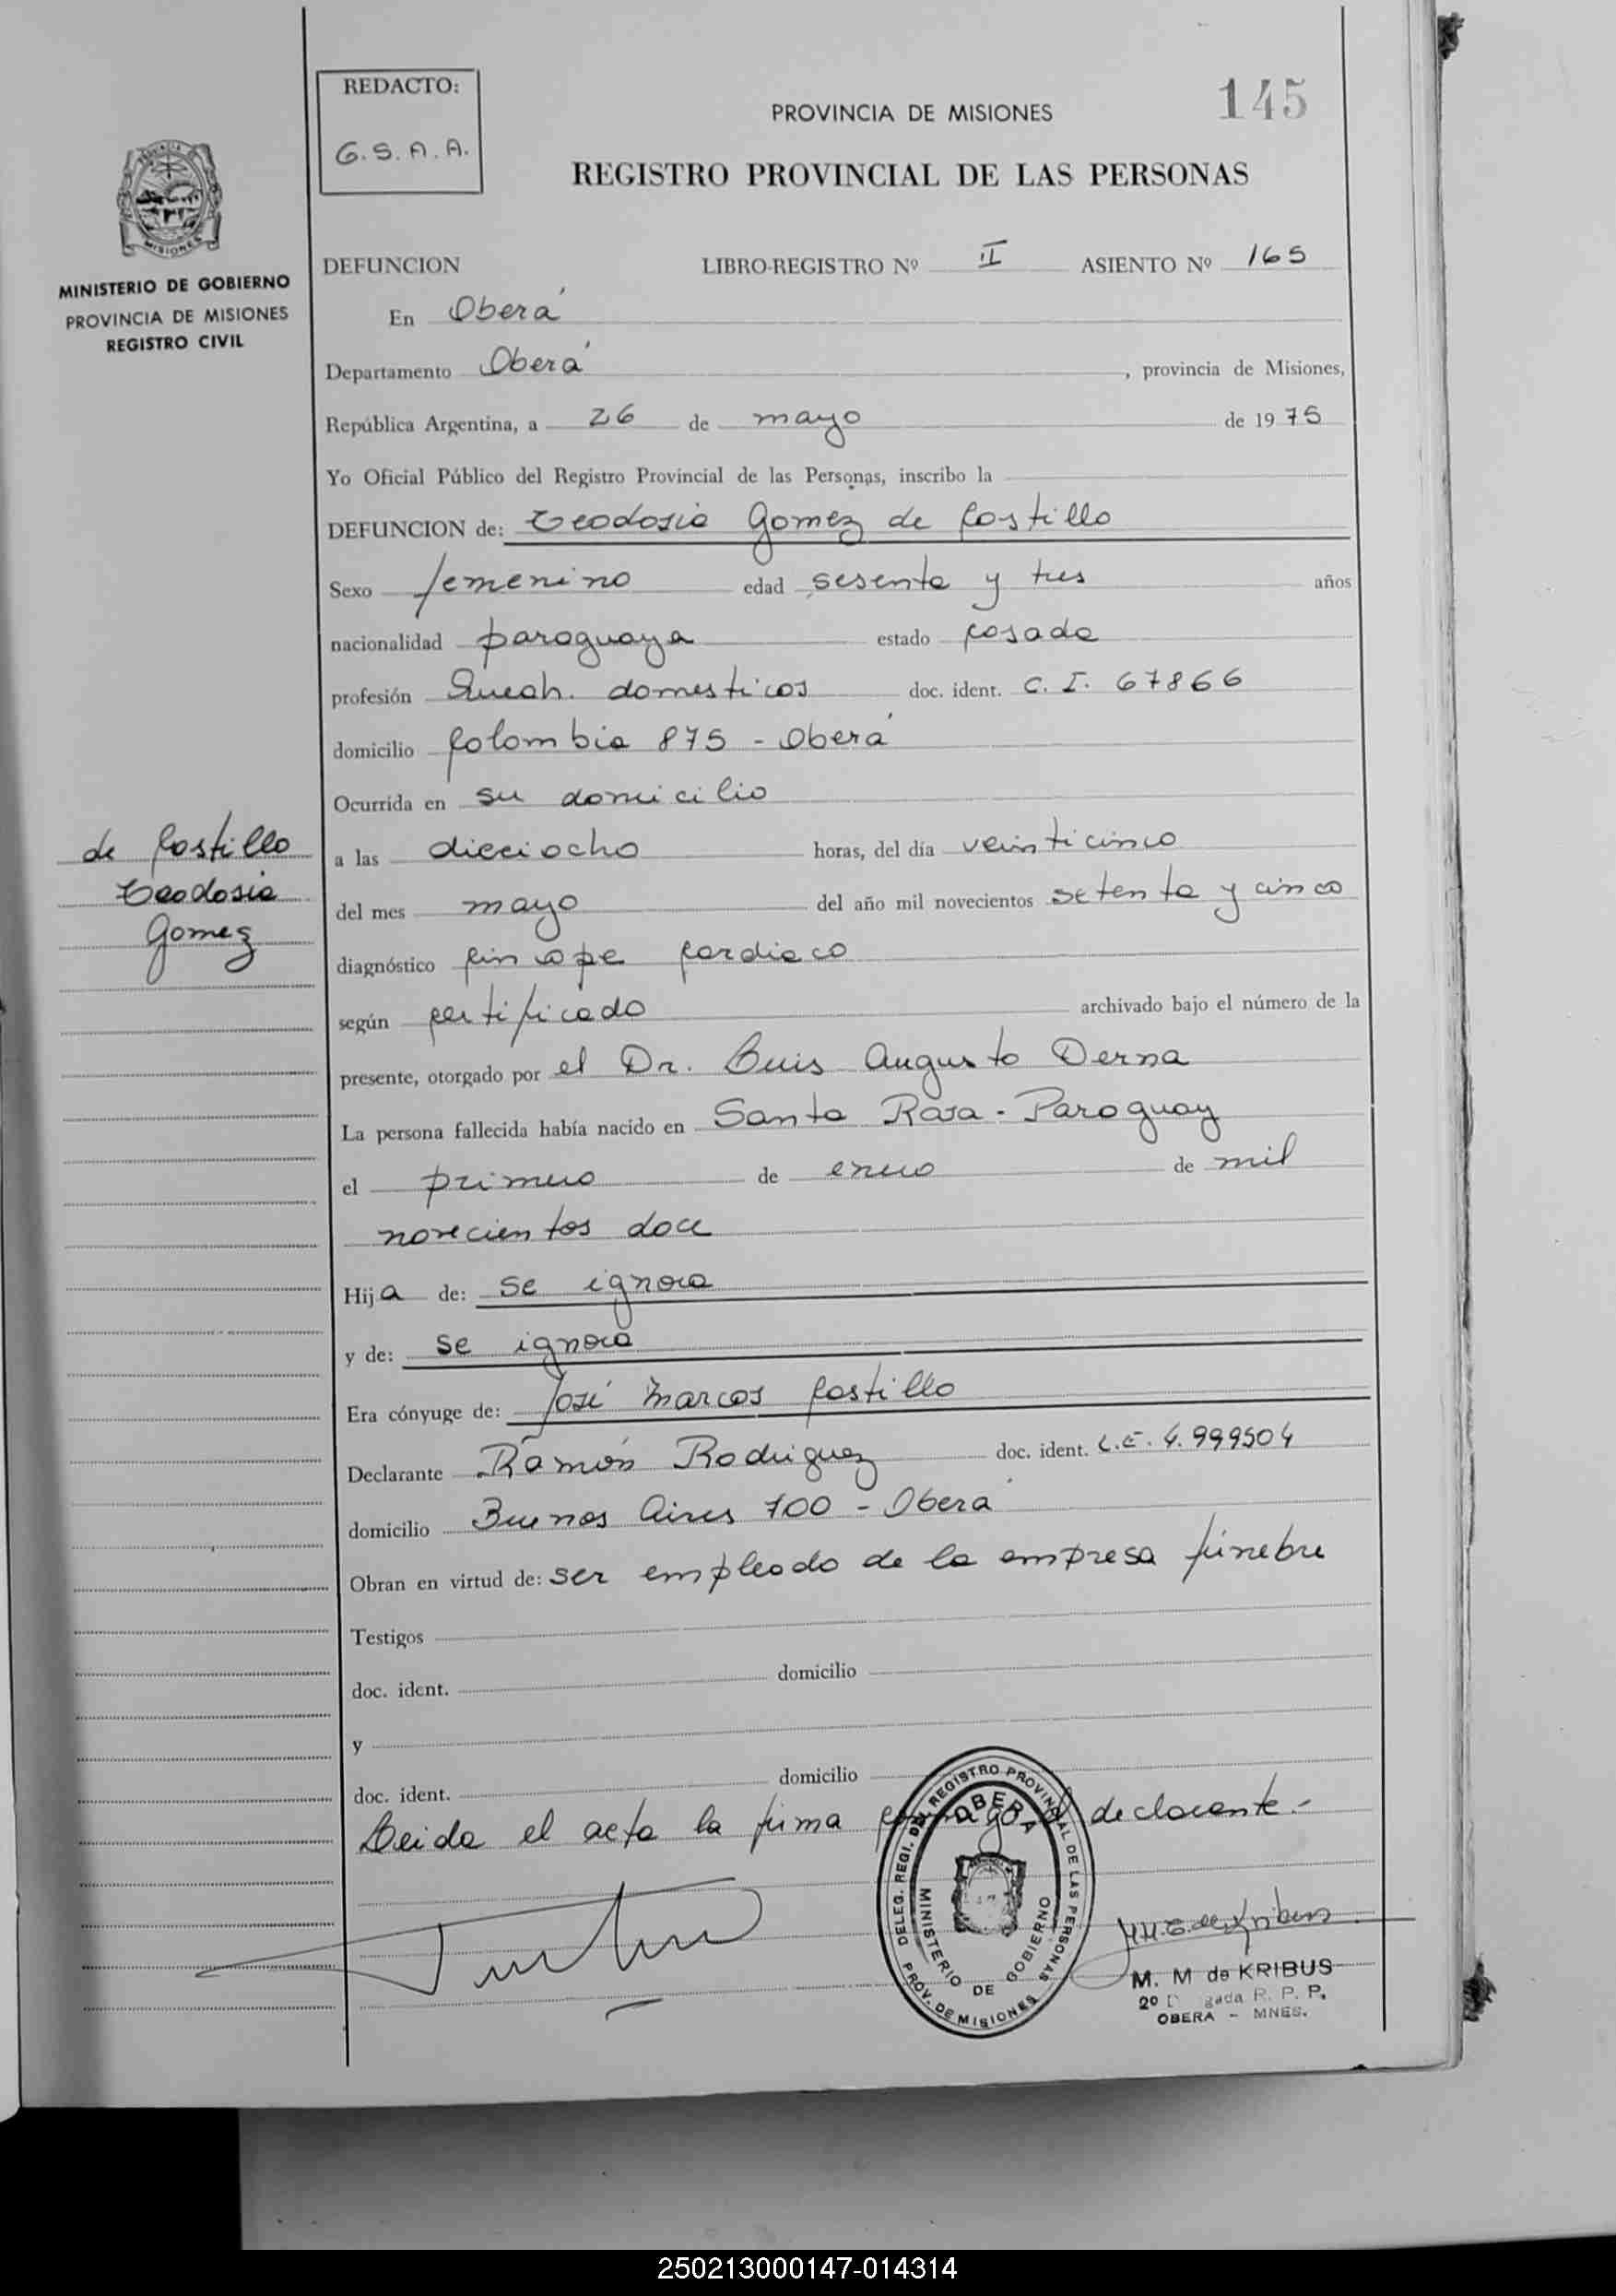 145
REDACTO:
G.S.A.A.
PROVINCIA DE MISIONES
REGISTRO PROVINCIAL DE LAS PERSONAS
MISIONES
MINISTERIO DE GOBIERNO
PROVINCIA DE MISIONES
REGISTRO CIVIL
DEFUNCION LIBRO-REGISTRO Nº II ASIENTO Nº 165
En Oberá
Departamento Oberá, provincia de Misiones,
República Argentina, a 26 de mayo de 1975
Yo Oficial Público del Registro Provincial de las Personas, inscribo la
DEFUNCION de: Teodosia Gomez de Castillo
Sexo femenino edad sesenta y tres años
nacionalidad paraguaya estado casada
profesión Queah. domesticos doc. ident. C. I. 67866
domicilio Colombia 875 - Oberá
Ocurrida en su domicilio
de Castillo
Teodosia
Gomez
a las dieciocho horas, del día veinticinco
del mes mayo del año mil novecientos setenta y cinco
diagnóstico sincope cardiaco
según certificado archivado bajo el número de la
presente, otorgado por el Dr. Luis Augusto Derna
La persona fallecida había nacido en Santa Rosa - Paraguay
el primero de enero de mil
novecientos doce
Hija de: se ignora
y de: se ignora
Era cónyuge de: José Marcos Castillo
Declarante Ramón Rodriguez doc. ident. L.E. 4.999504
domicilio Buenos Aires 700 - Oberá
Obran en virtud de: ser empleado de la empresa fúnebre
Testigos
doc. ident. domicilio
y
doc. ident. domicilio
Leida el acta la firma conmigo el declarante.-
DELEG. REGI. DEL REGISTRO PROVINCIAL DE LAS PERSONAS
OBERA
MINISTERIO DE GOBIERNO
PROV. DE MISIONES
M. M de KRIBUS
2º gada R. P. P.
OBERA - MNES.
250213000147-014314